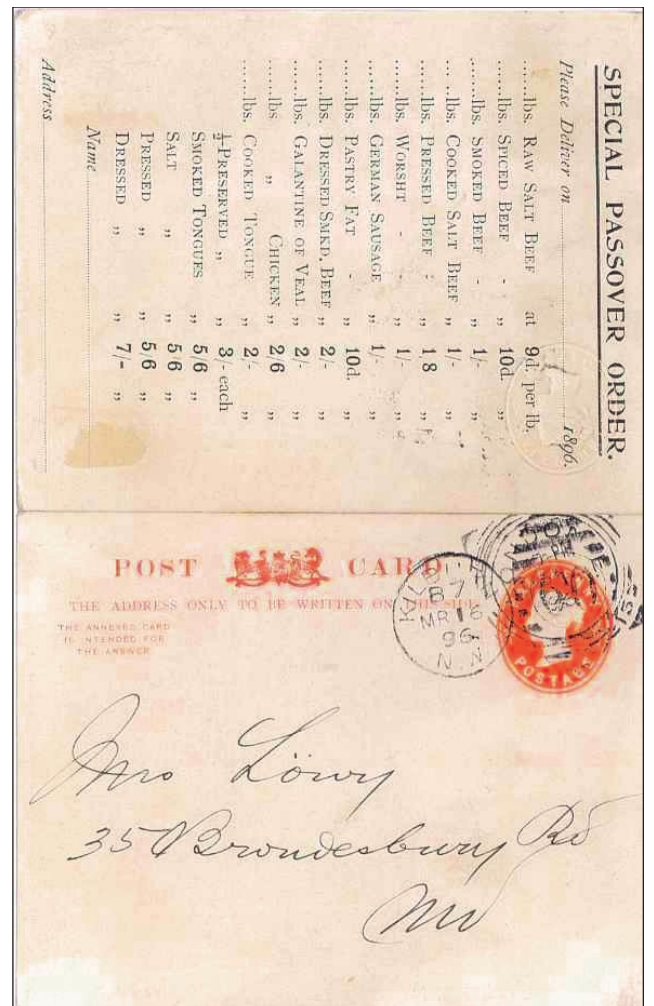 SPECIAL PASSOVER ORDER.
Please Deliver on ........ 1896.
......lbs. RAW SALT BEEF at 9d. per lb.
......lbs. SPICED BEEF - „ 10d. „
......lbs. SMOKED BEEF - „ 1/- „
......lbs. COOKED SALT BEEF „ 1/- „
......lbs. PRESSED BEEF - „ 1 8 „
......lbs. WORSHT - - „ 1/- „
......lbs. GERMAN SAUSAGE „ 1/- „
......lbs. PASTRY FAT - „ 10d. „
......lbs. DRESSED SMKD. BEEF „ 2/- „
......lbs. GALANTINE OF VEAL „ 2/- „
......lbs „ CHICKEN „ 2/6 „
......lbs. COOKED TONGUE „ 2/- „
PRESERVED „ „ 3/- each
SMOKED TONGUES „ 5/6 „
SALT „ „ 5/6 „
PRESSED „ „ 5/6 „
DRESSED „ „ 7/- „
Name
Address
POST CARD
THE ADDRESS ONLY TO BE WRITTEN ON THIS SIDE
THE ANNEXED CARD
IS INTENDED FOR
THE ANSWER
B 7
MR 16
96
N.W
POSTAGE
Mrs Löwy
35 Brondesbury Rd
NW